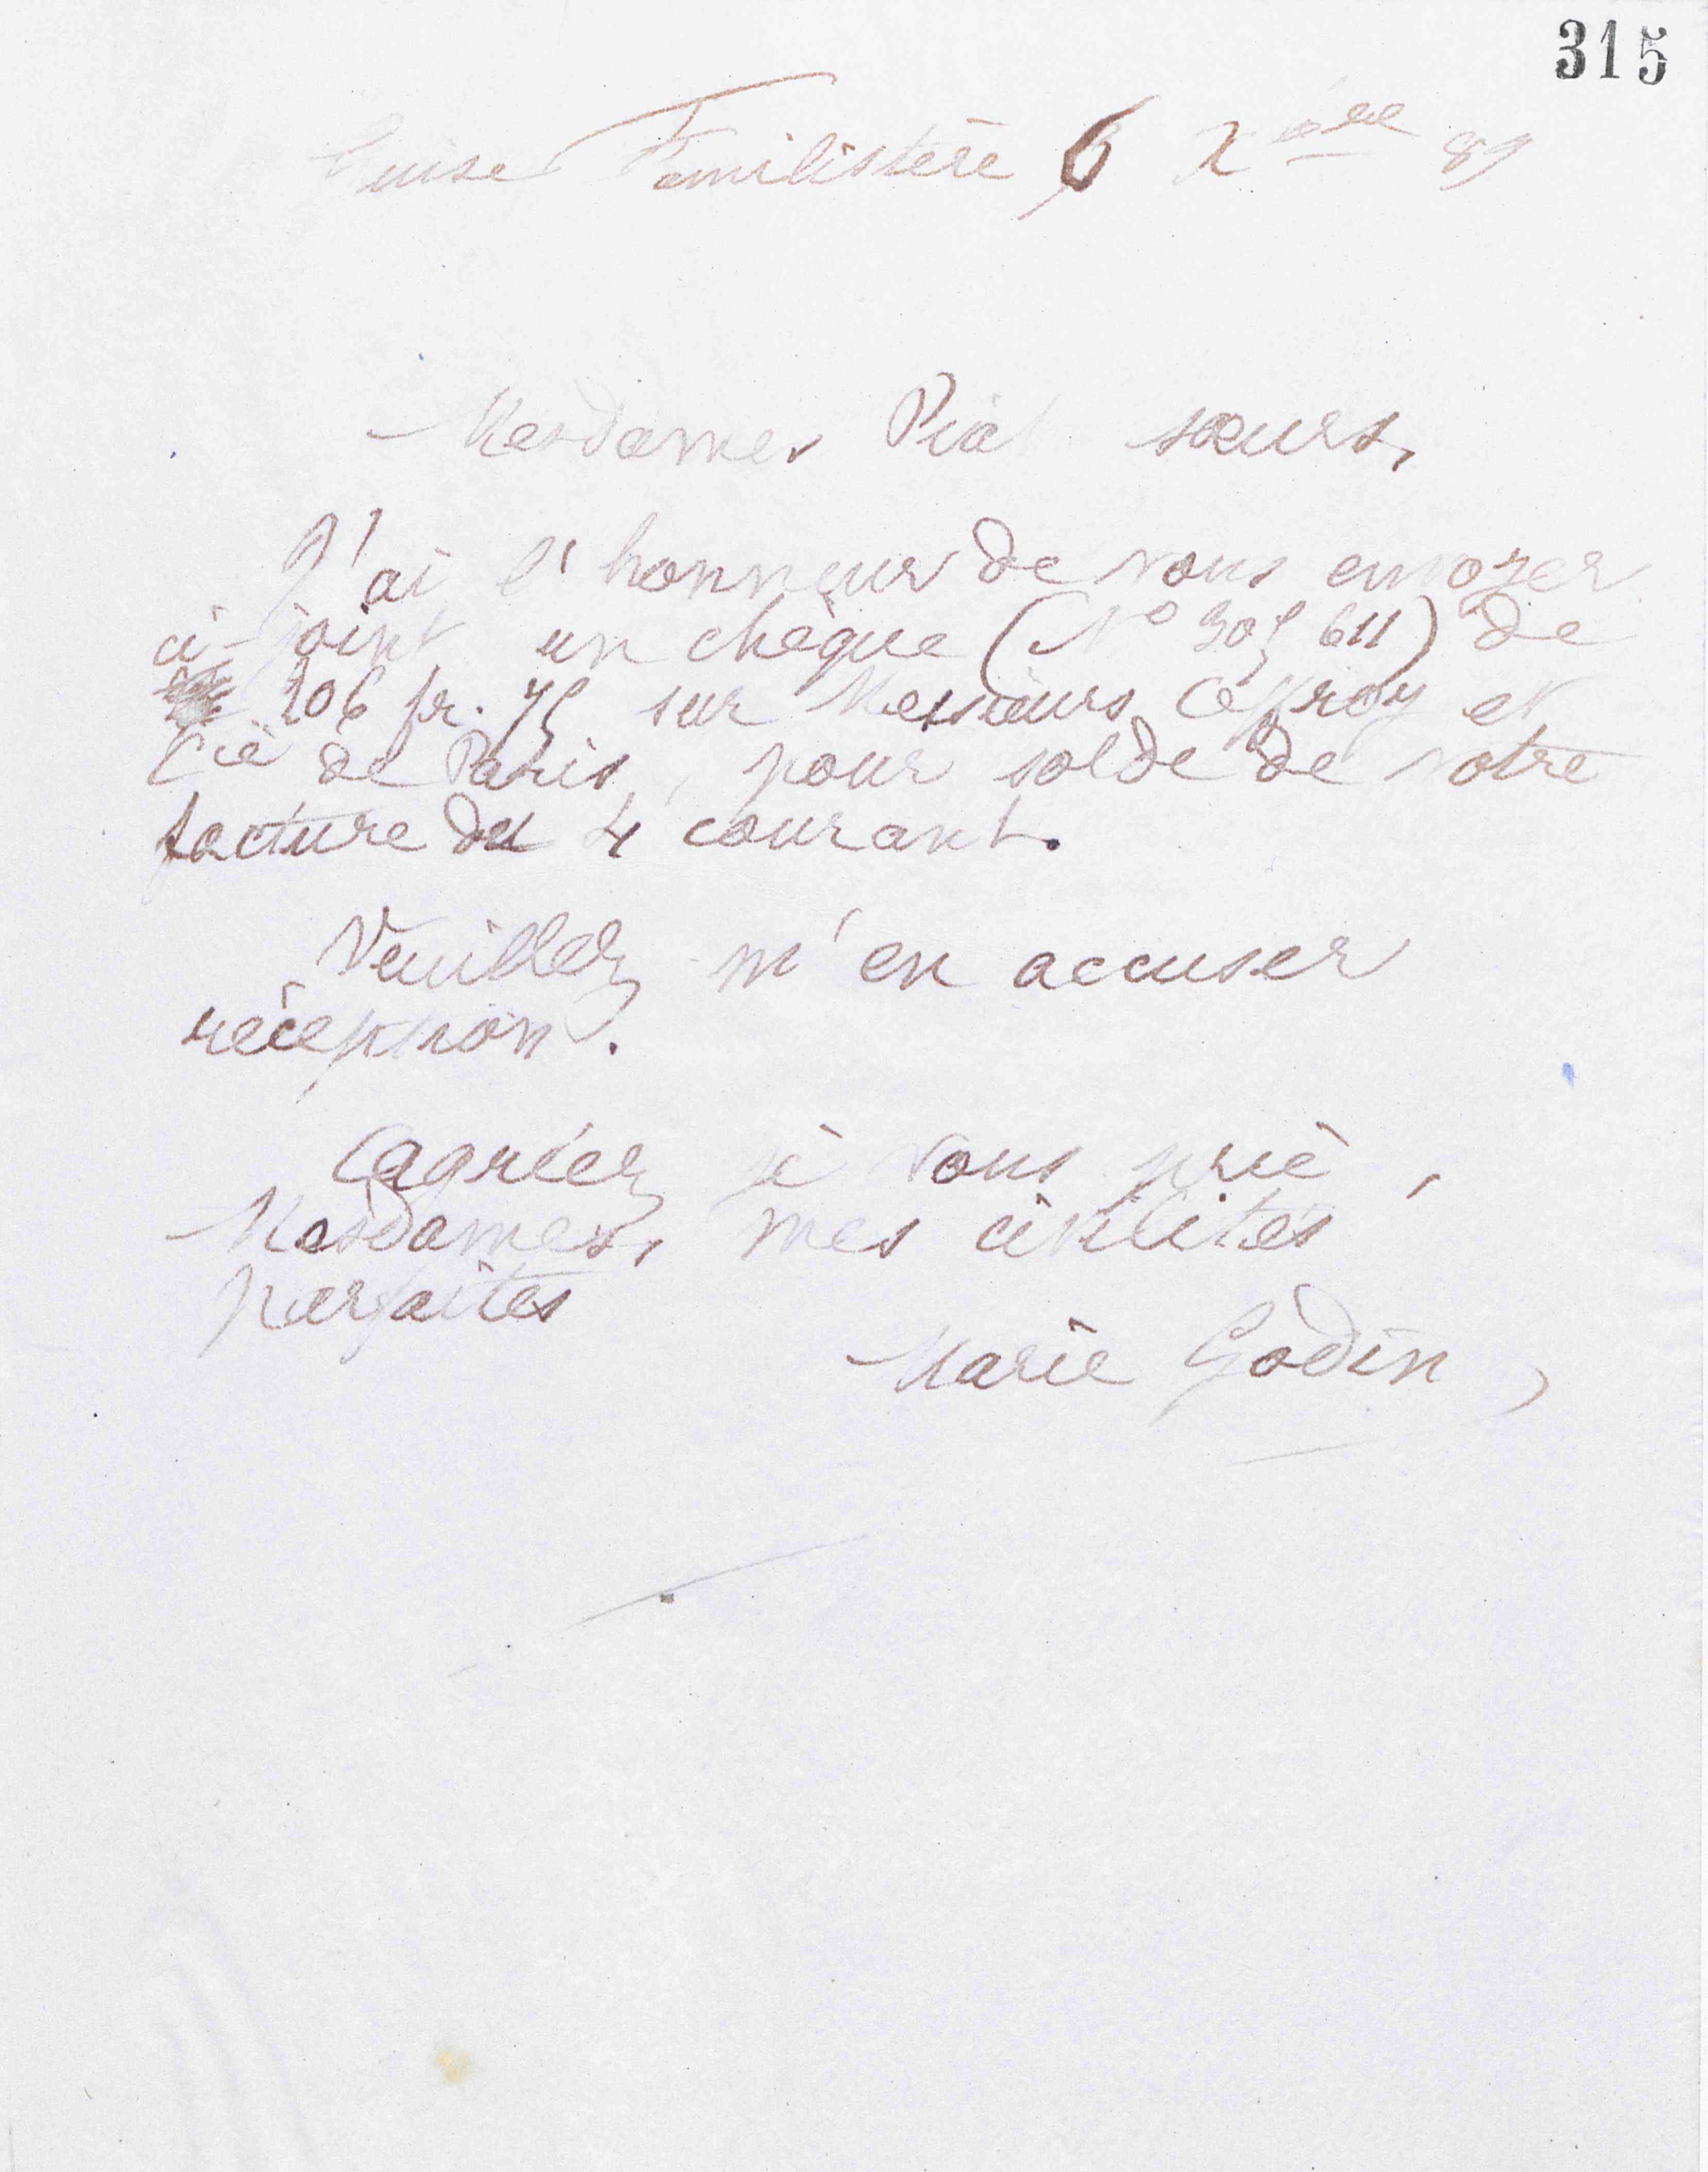 315
Guise Familistère 6 Xbre 89
Mesdames Piat sœurs,
J'ai l'honneur de vous envoyer
ci-joint un chèque (N° 305 611) de
206 fr. 75 sur Messieurs et
Cie de Paris, pour solde de votre
facture du 4 courant.
Veuillez m'en accuser
réception.
Agréez je vous prie,
Mesdames, mes civilités
parfaites
Marie Godin